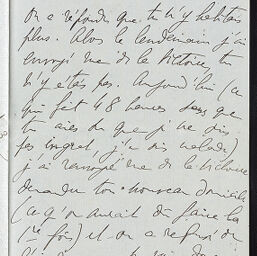 On a répondu que tu n'y habitais
plus. Alors le lendemain j'ai
envoyé rue de la Victoire, tu
n'y étais pas. Aujourd'hui (ce
qui fait 48 heures sans que
tu aies du que je ne suis
pas ingrat, j'en suis malade)
j'ai renvoyé rue de la Victoire
demander ton nouveau domicile
(ce qu'on aurait dû faire la
1re fois) et on a refusé de